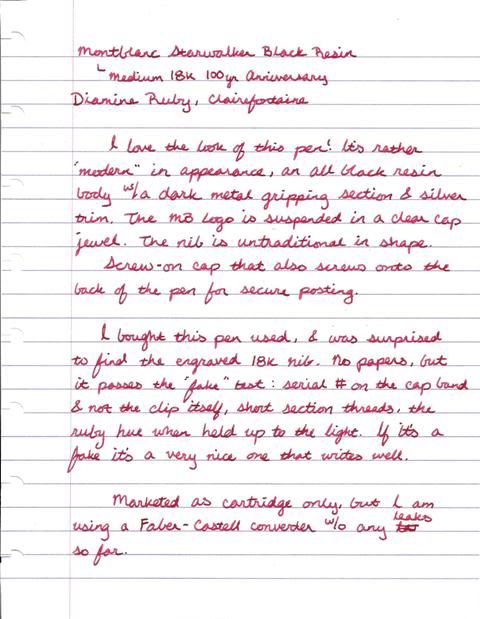 Montblanc Starwalker Black Resin
Medium 18K 100yr Anniversary
Diamine Ruby, Clairefontaine
I love the look of this pen! It's rather
"modern" in appearance, an all black resin
body w/a dark metal gripping section & silver
trim. The MB logo is suspended in a clear cap
jewel. The nib is untraditional in shape.
Screw-on cap that also screws onto the
back of the pen for secure posting.
I bought this pen used, & was surprised
to find the engraved 18K nib. No papers, but
it passes the "fake" test: serial # on the cap band
& not the clip itself, short section threads, the
ruby hue when held up to the light. If it's a
fake it's a very nice one that writes well.
Marketed as cartridge only, but I am
using a Faber-Castell converter w/o any leaks
so far.